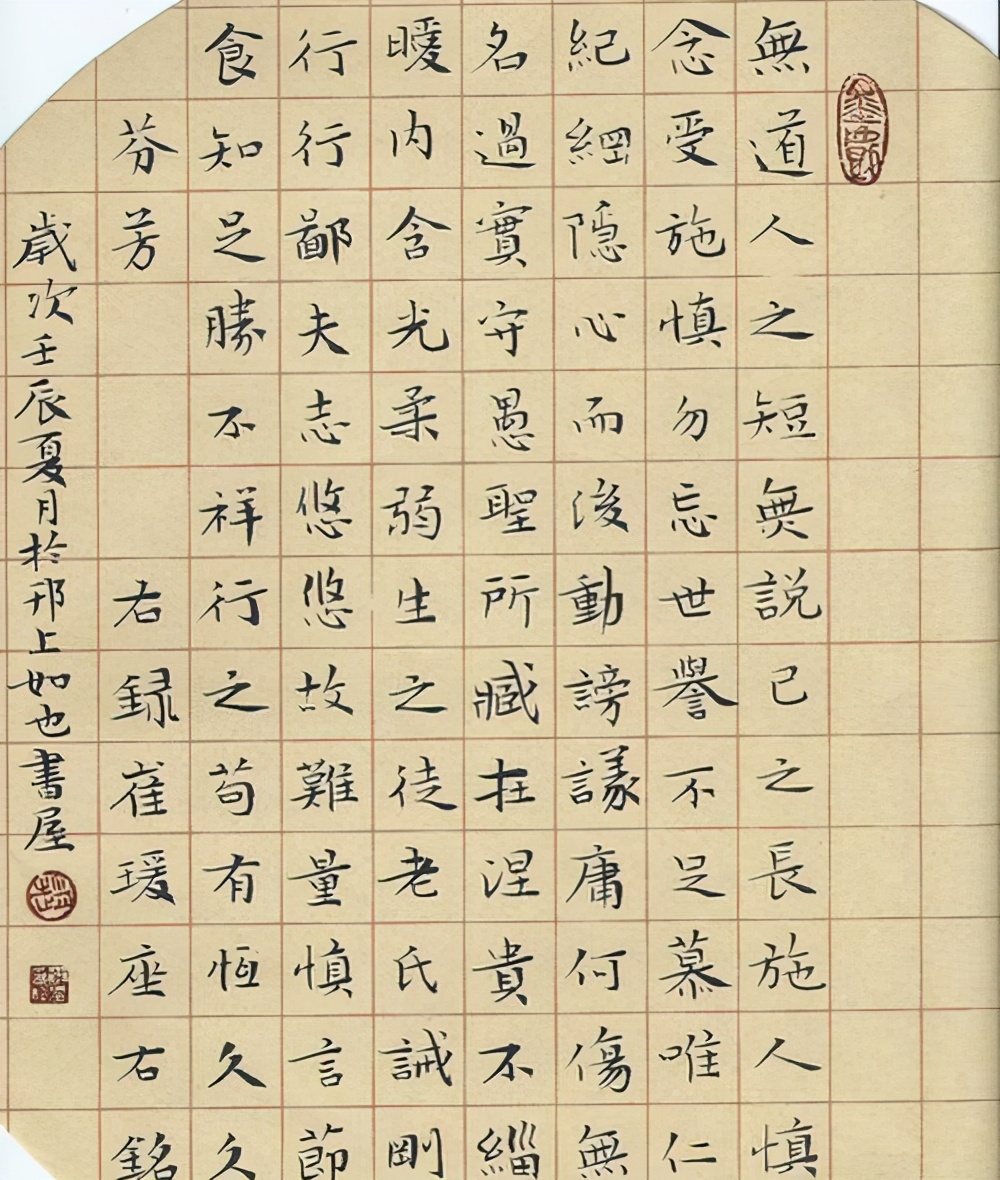 無道人之短無說己之長施人慎
念受施慎勿忘世譽不足慕唯仁
紀綱隱心而後動謗議庸何傷無
名過實守愚聖所臧在涅貴不緇
曖內含光柔弱生之徒老氏誡剛
行行鄙夫志悠悠故難量慎言節
食知足勝不祥行之苟有恆久久
芬芳
右録崔瑗座右銘
歲次壬辰夏月於邗上如也書屋